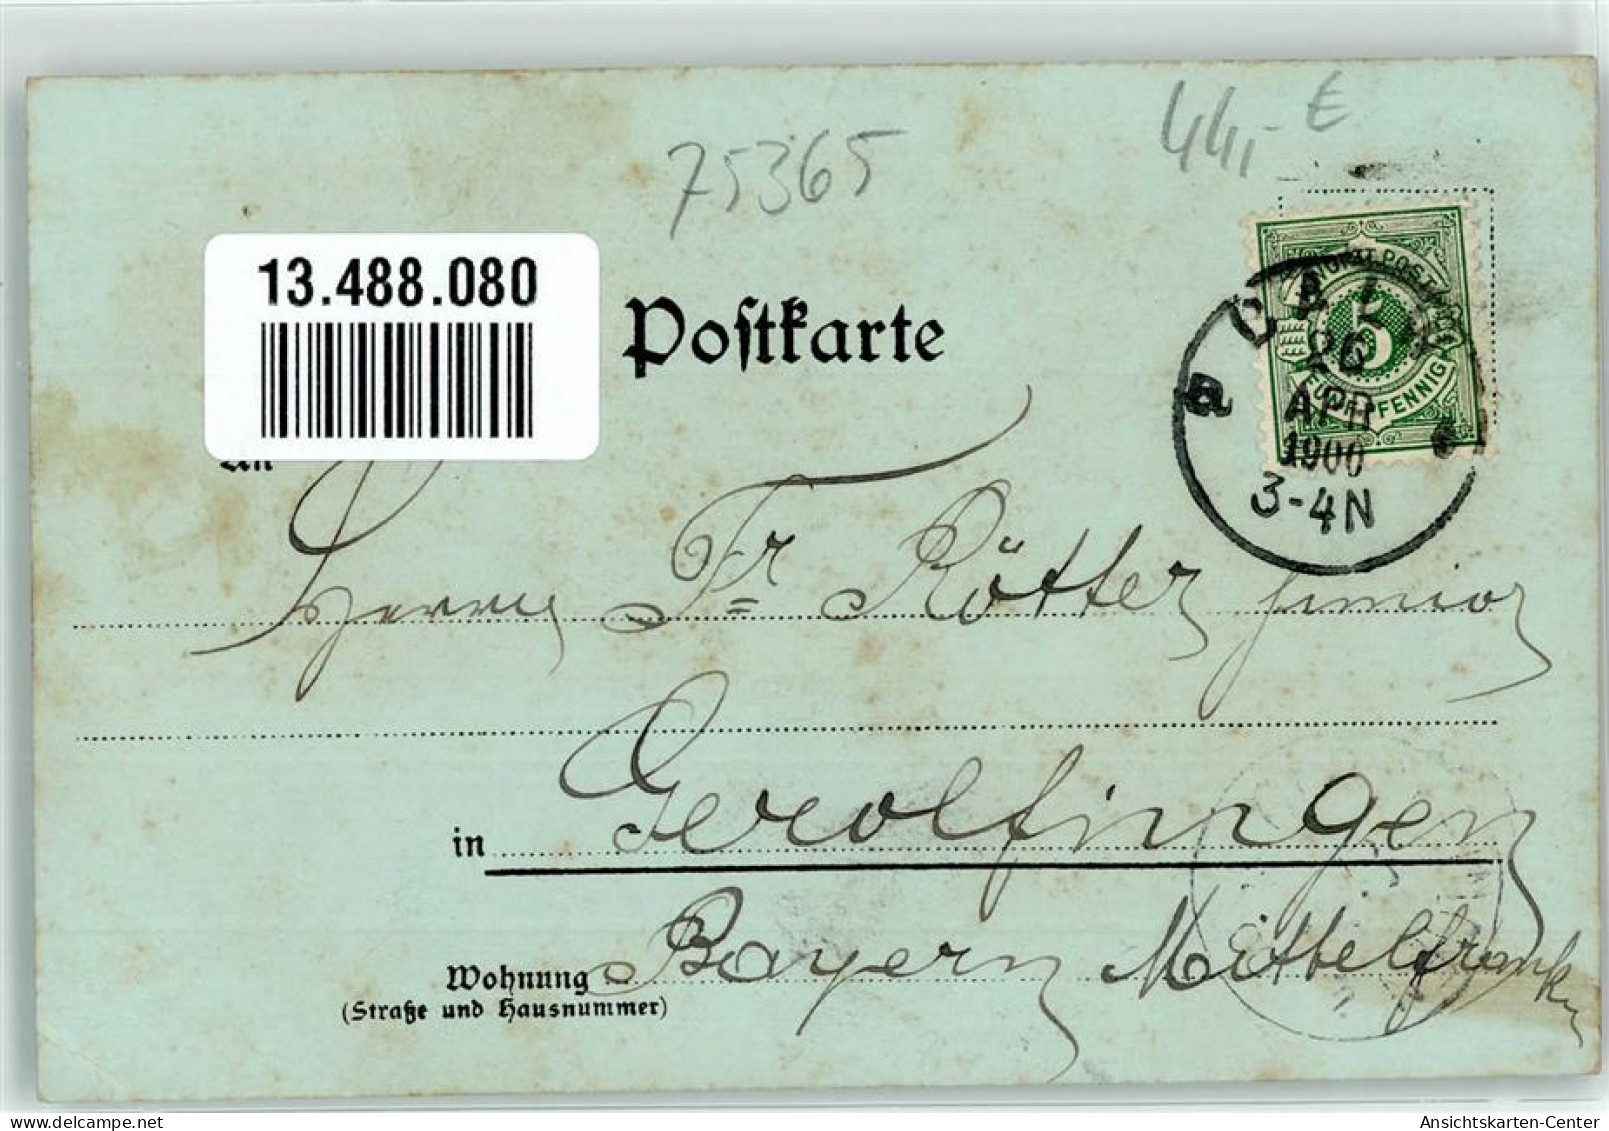 75365
44,- €
13.488.080
Postkarte
An
Herrn Fr Rötter junior
in Gerolfingen
Bayern Mittelfranken
Wohnung
(Straße und Hausnummer)
5
FÜNF PFENNIG
26
APR
1900
3-4N
a
Ansichtskarten-Center